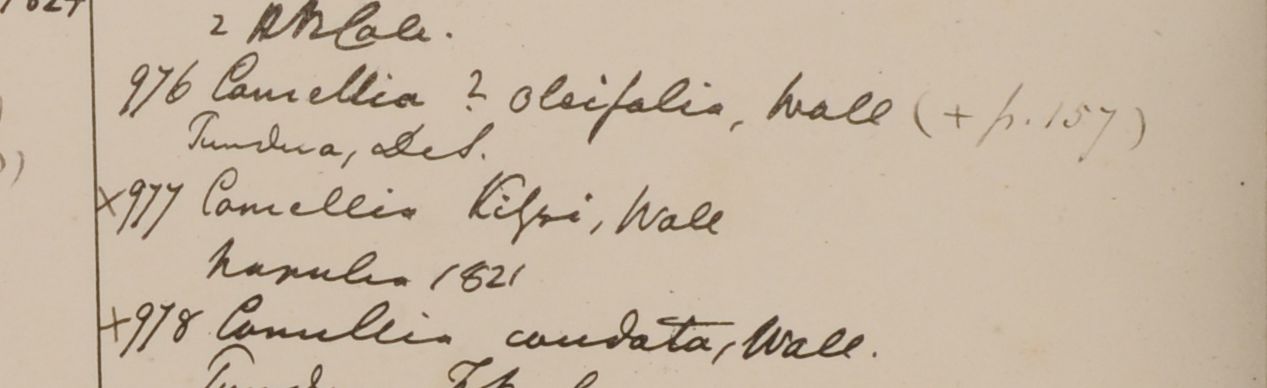 1824
2 HBCalc.
976 Camellia ? oleifolia, Wall (+ p. 157)
Tundua, DeS.
×977 Camellia Kissi, Wall
Napalia 1821
×978 Camellia caudata, Wall.